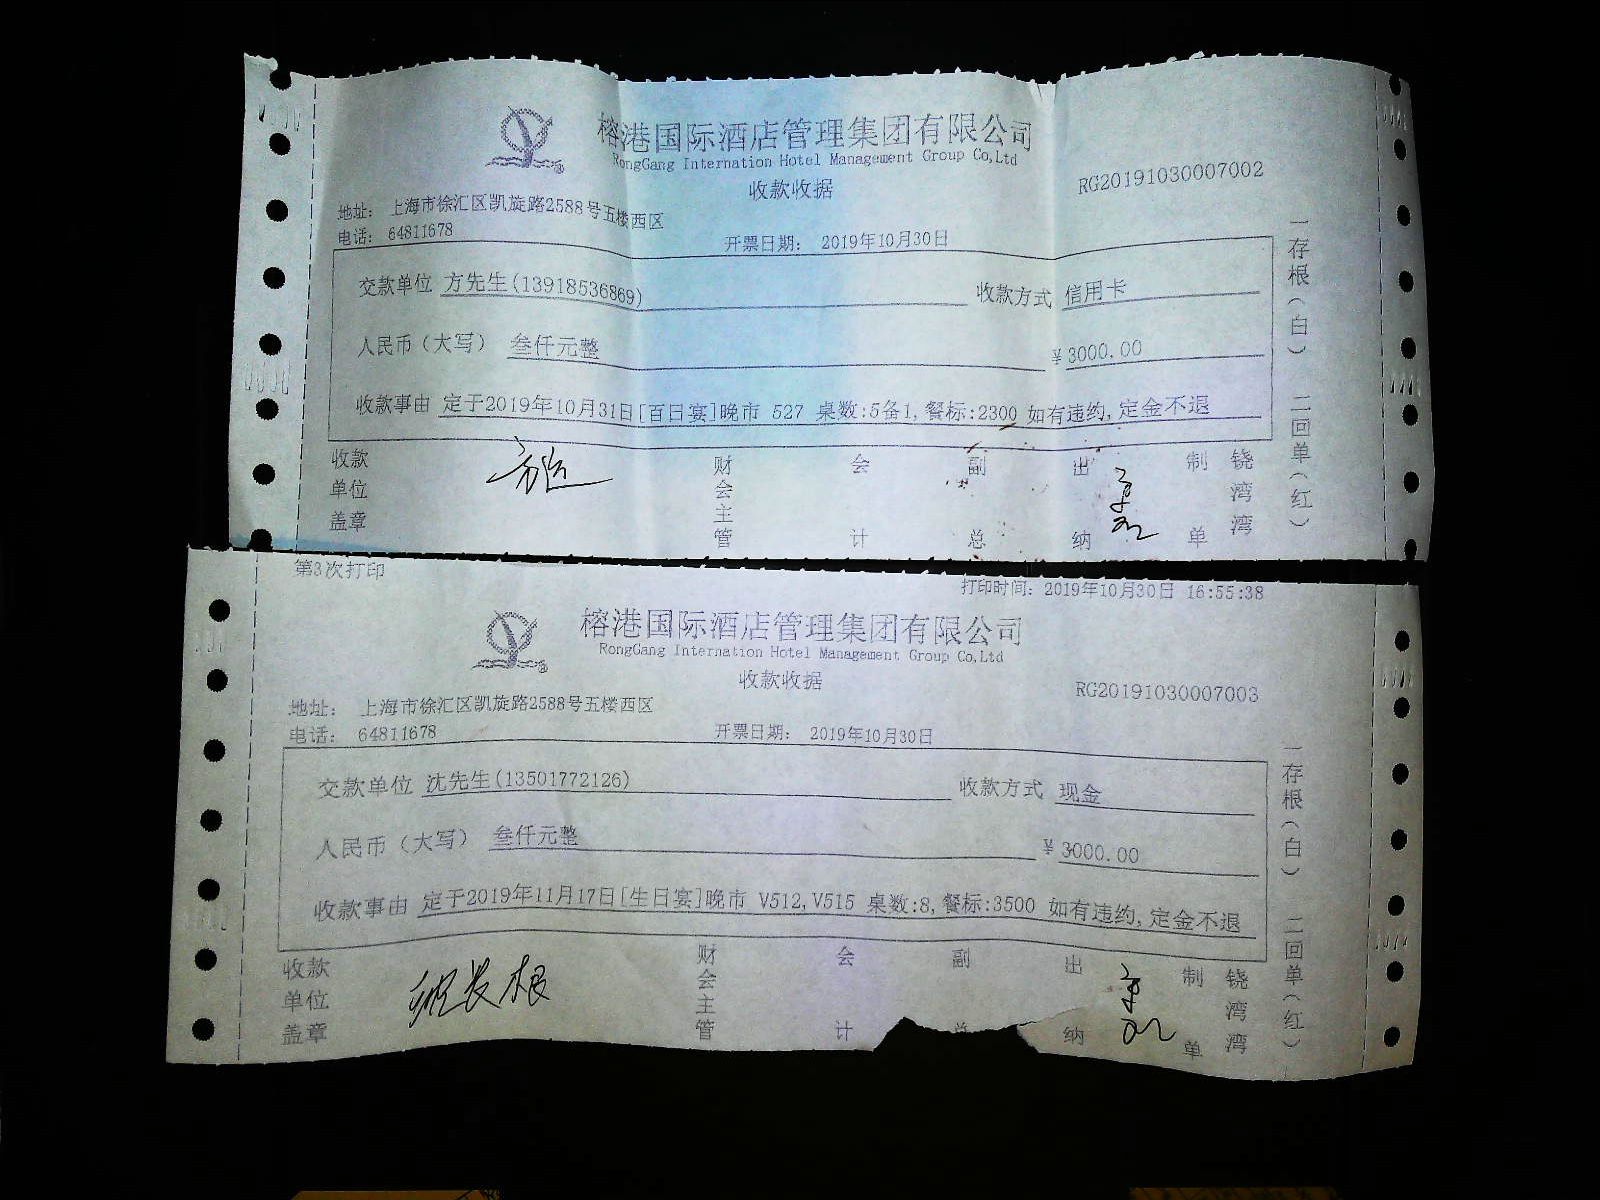 榕港国际酒店管理集团有限公司
RongGang Internation Hotel Management Group Co,Ltd
收款收据
RG20191030007002
地址： 上海市徐汇区凯旋路2588号五楼西区
电话： 64811678
开票日期： 2019年10月30日
交款单位 方先生(13918536869) 收款方式 信用卡
人民币（大写） 叁仟元整 ￥3000.00
收款事由 定于2019年10月31日[百日宴]晚市 527 桌数:5备1,餐标:2300 如有违约,定金不退
收款单位盖章
财会主管
会计
副总
出纳
制单
铙湾湾
一存根（白） 二回单（红）
第3次打印
打印时间: 2019年10月30日 16:55:38
榕港国际酒店管理集团有限公司
RongGang Internation Hotel Management Group Co,Ltd
收款收据
RG20191030007003
地址： 上海市徐汇区凯旋路2588号五楼西区
电话： 64811678
开票日期： 2019年10月30日
交款单位 沈先生(13501772126) 收款方式 现金
人民币（大写） 叁仟元整 ￥3000.00
收款事由 定于2019年11月17日[生日宴]晚市 V512,V515 桌数:8,餐标:3500 如有违约,定金不退
收款单位盖章
财会主管
会计
副总
出纳
制单
铙湾湾
一存根（白） 二回单（红）